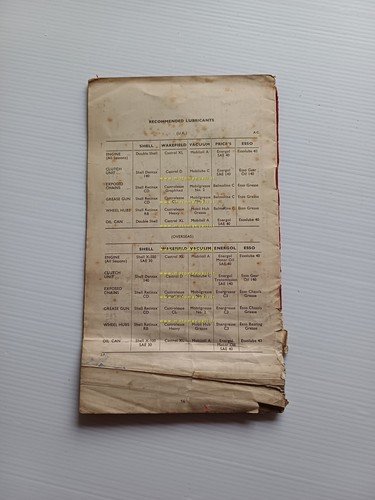 RECOMMENDED LUBRICANTS
(U.K.)
SHELL WAKEFIELD VACUUM PRICE'S ESSO
ENGINE (All Seasons) Double Shell Castrol XL Mobiloil A Energol SAE 40 Essolube 40
CLUTCH UNIT Shell Dentax 140 Castrol D Mobiloil C Energol SAE 140 Esso Gear Oil 140
EXPOSED CHAINS Shell Retinax CD Castrolease Graphited Mobilgrease No. 2 Belmoline C Esso Grease
GREASE GUN Shell Retinax CD Castrolease Belmoline C Esso Grease
WHEEL HUBS Shell Retinax RB Castrolease Heavy Mobil Hub Grease Belmoline C Esso Grease
OIL CAN Double Shell Castrol XL Mobiloil A Energol SAE 40 Essolube 40
(OVERSEAS)
SHELL WAKEFIELD VACUUM ENERGOL ESSO
ENGINE (All Seasons) Shell X-100 SAE 30 Castrol XL Mobiloil A Energol Motor Oil SAE 40 Essolube 40
CLUTCH UNIT Shell Dentax 140 Castrol D Mobiloil C Energol Transmission 140 Esso Gear Oil 140
EXPOSED CHAINS Shell Retinax CD Energrease C3 Esso Chassis Grease
GREASE GUN Shell Retinax CD Castrolease CL Mobilgrease No. 2 Energrease C3 Esso Chassis Grease
WHEEL HUBS Shell Retinax RB Castrolease Heavy Mobil Hub Grease Energrease C3 Esso Bearing Grease
OIL CAN Shell X-100 SAE 30 Castrol XL Mobiloil A Energol Motor Oil SAE 40 Essolube 40